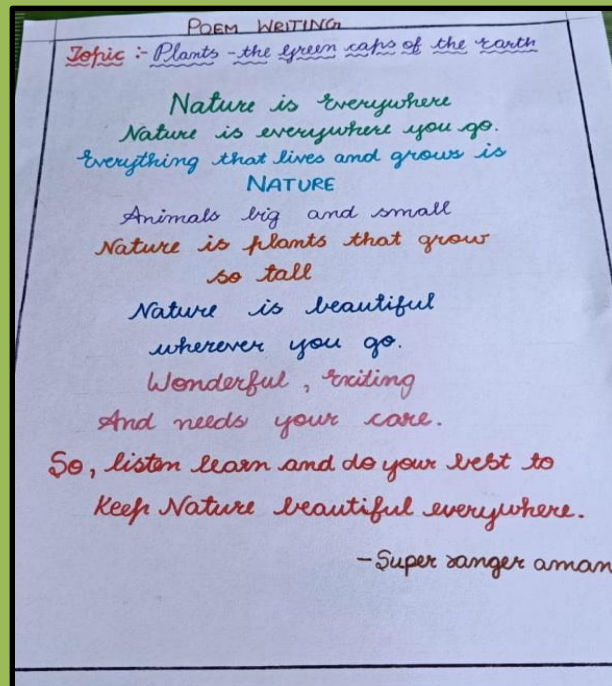 POEM WRITING
Topic :- Plants - the green caps of the earth
Nature is Everywhere
Nature is everywhere you go.
Everything that lives and grows is
NATURE
Animals big and small
Nature is plants that grow
so tall
Nature is beautiful
wherever you go.
Wonderful , Exiting
And needs your care.
So, listen learn and do your best to
Keep Nature beautiful everywhere.
- Super ranger aman